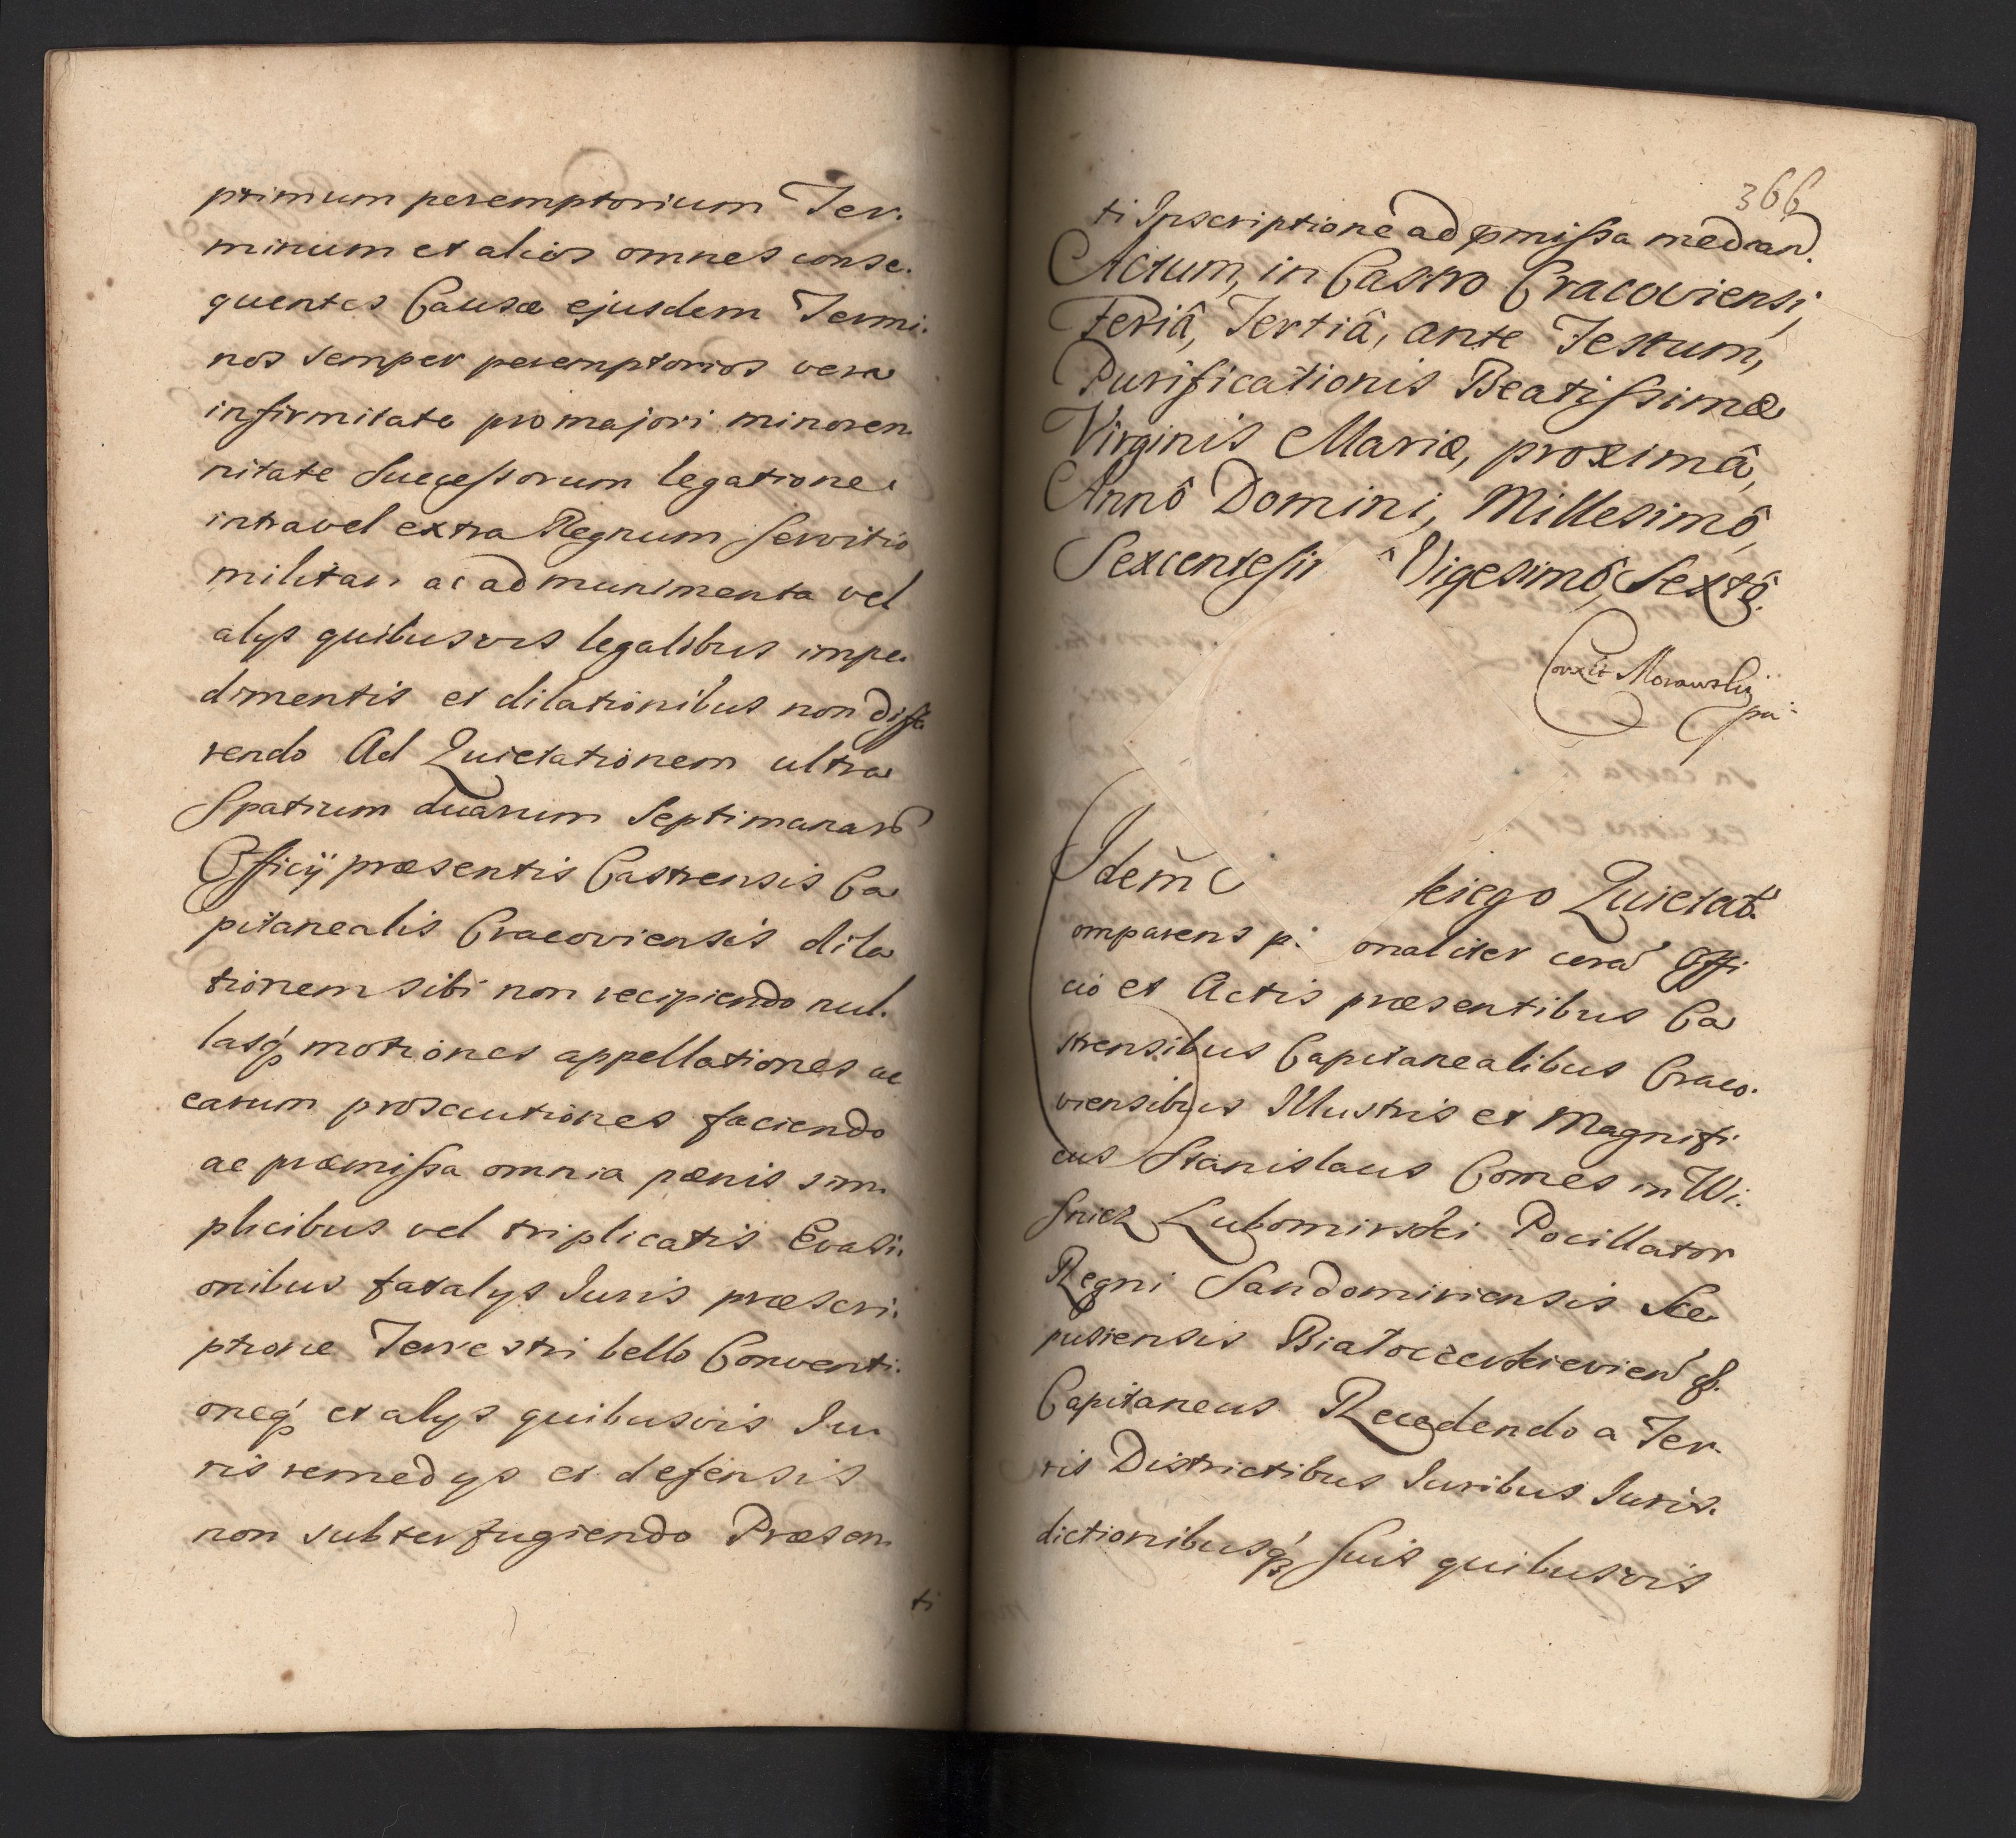 primum peremptorium Ter.
minum et alios omnes conse.
quentes Causæ ejusdem Termi.
nos semper peremptorios vera
infirmitate pro majori minoren
nitate Sucessorum legatione
intra vel extra Regnum servitio
militari ac ad munimenta vel
alys quibusvis legalibus impe.
dimentis et dilationibus non diffe
rendo Ad Quietationem ultra
Spatium duarum Septimanarũ
Officij præsentis Castrensis Ca
pitanealis Cracoviensis dila
tionem sibi non recipiendo nul.
lasq́ motiones appellationes ac
earum prosecutiones faciendo
ac præmissa omnia pænis sim
plicibus vel triplicatis Evasi.
onibus fatalys Iuris præscri.
ptione Terrestri bello Conventi.
oneq́ et alys quibusvis Iu
ris remedys et defensis
non subterfugiendo Præsen
ti
366
ti Inscriptione ad pmissa median.
Actum, in Castro Cracoviensi,
Feriâ, Tertiâ, ante Festum,
Purificationis Beatissimæ
Virginis Mariæ, proximâ,
Annô Domini, Millesimô,
Sexcentesi Vigesimô, Sextô.
Corexit Morawskj
Idem kiego Quietat
omparens p onaliter corã Offi
cio et Actis præsentibus Ca
strensibus Capitanealibus Craco.
viensibus Illustris et Magnifi
cus Stanislaus Comes in Wi.
snicz Lubomirski Pocillator
Regni Sandomiriensis Sce
pusiensis Białocerkievien
Capitaneus Recedendo a Ter
ris Districtibus Iuribus Iuris.
dictionibusq́ suis quibusvis